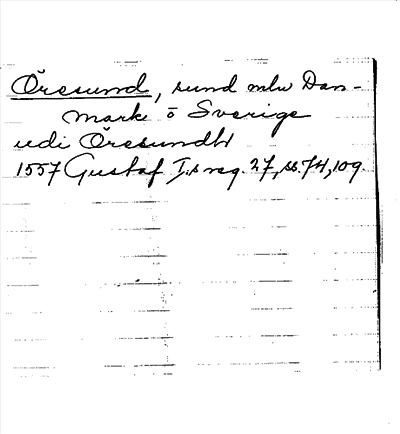 Öresund, sund mlm Dan-
mark o Sverige
udi Öresundh
1557 Gustaf I:s reg. 27, ss. 74, 109.